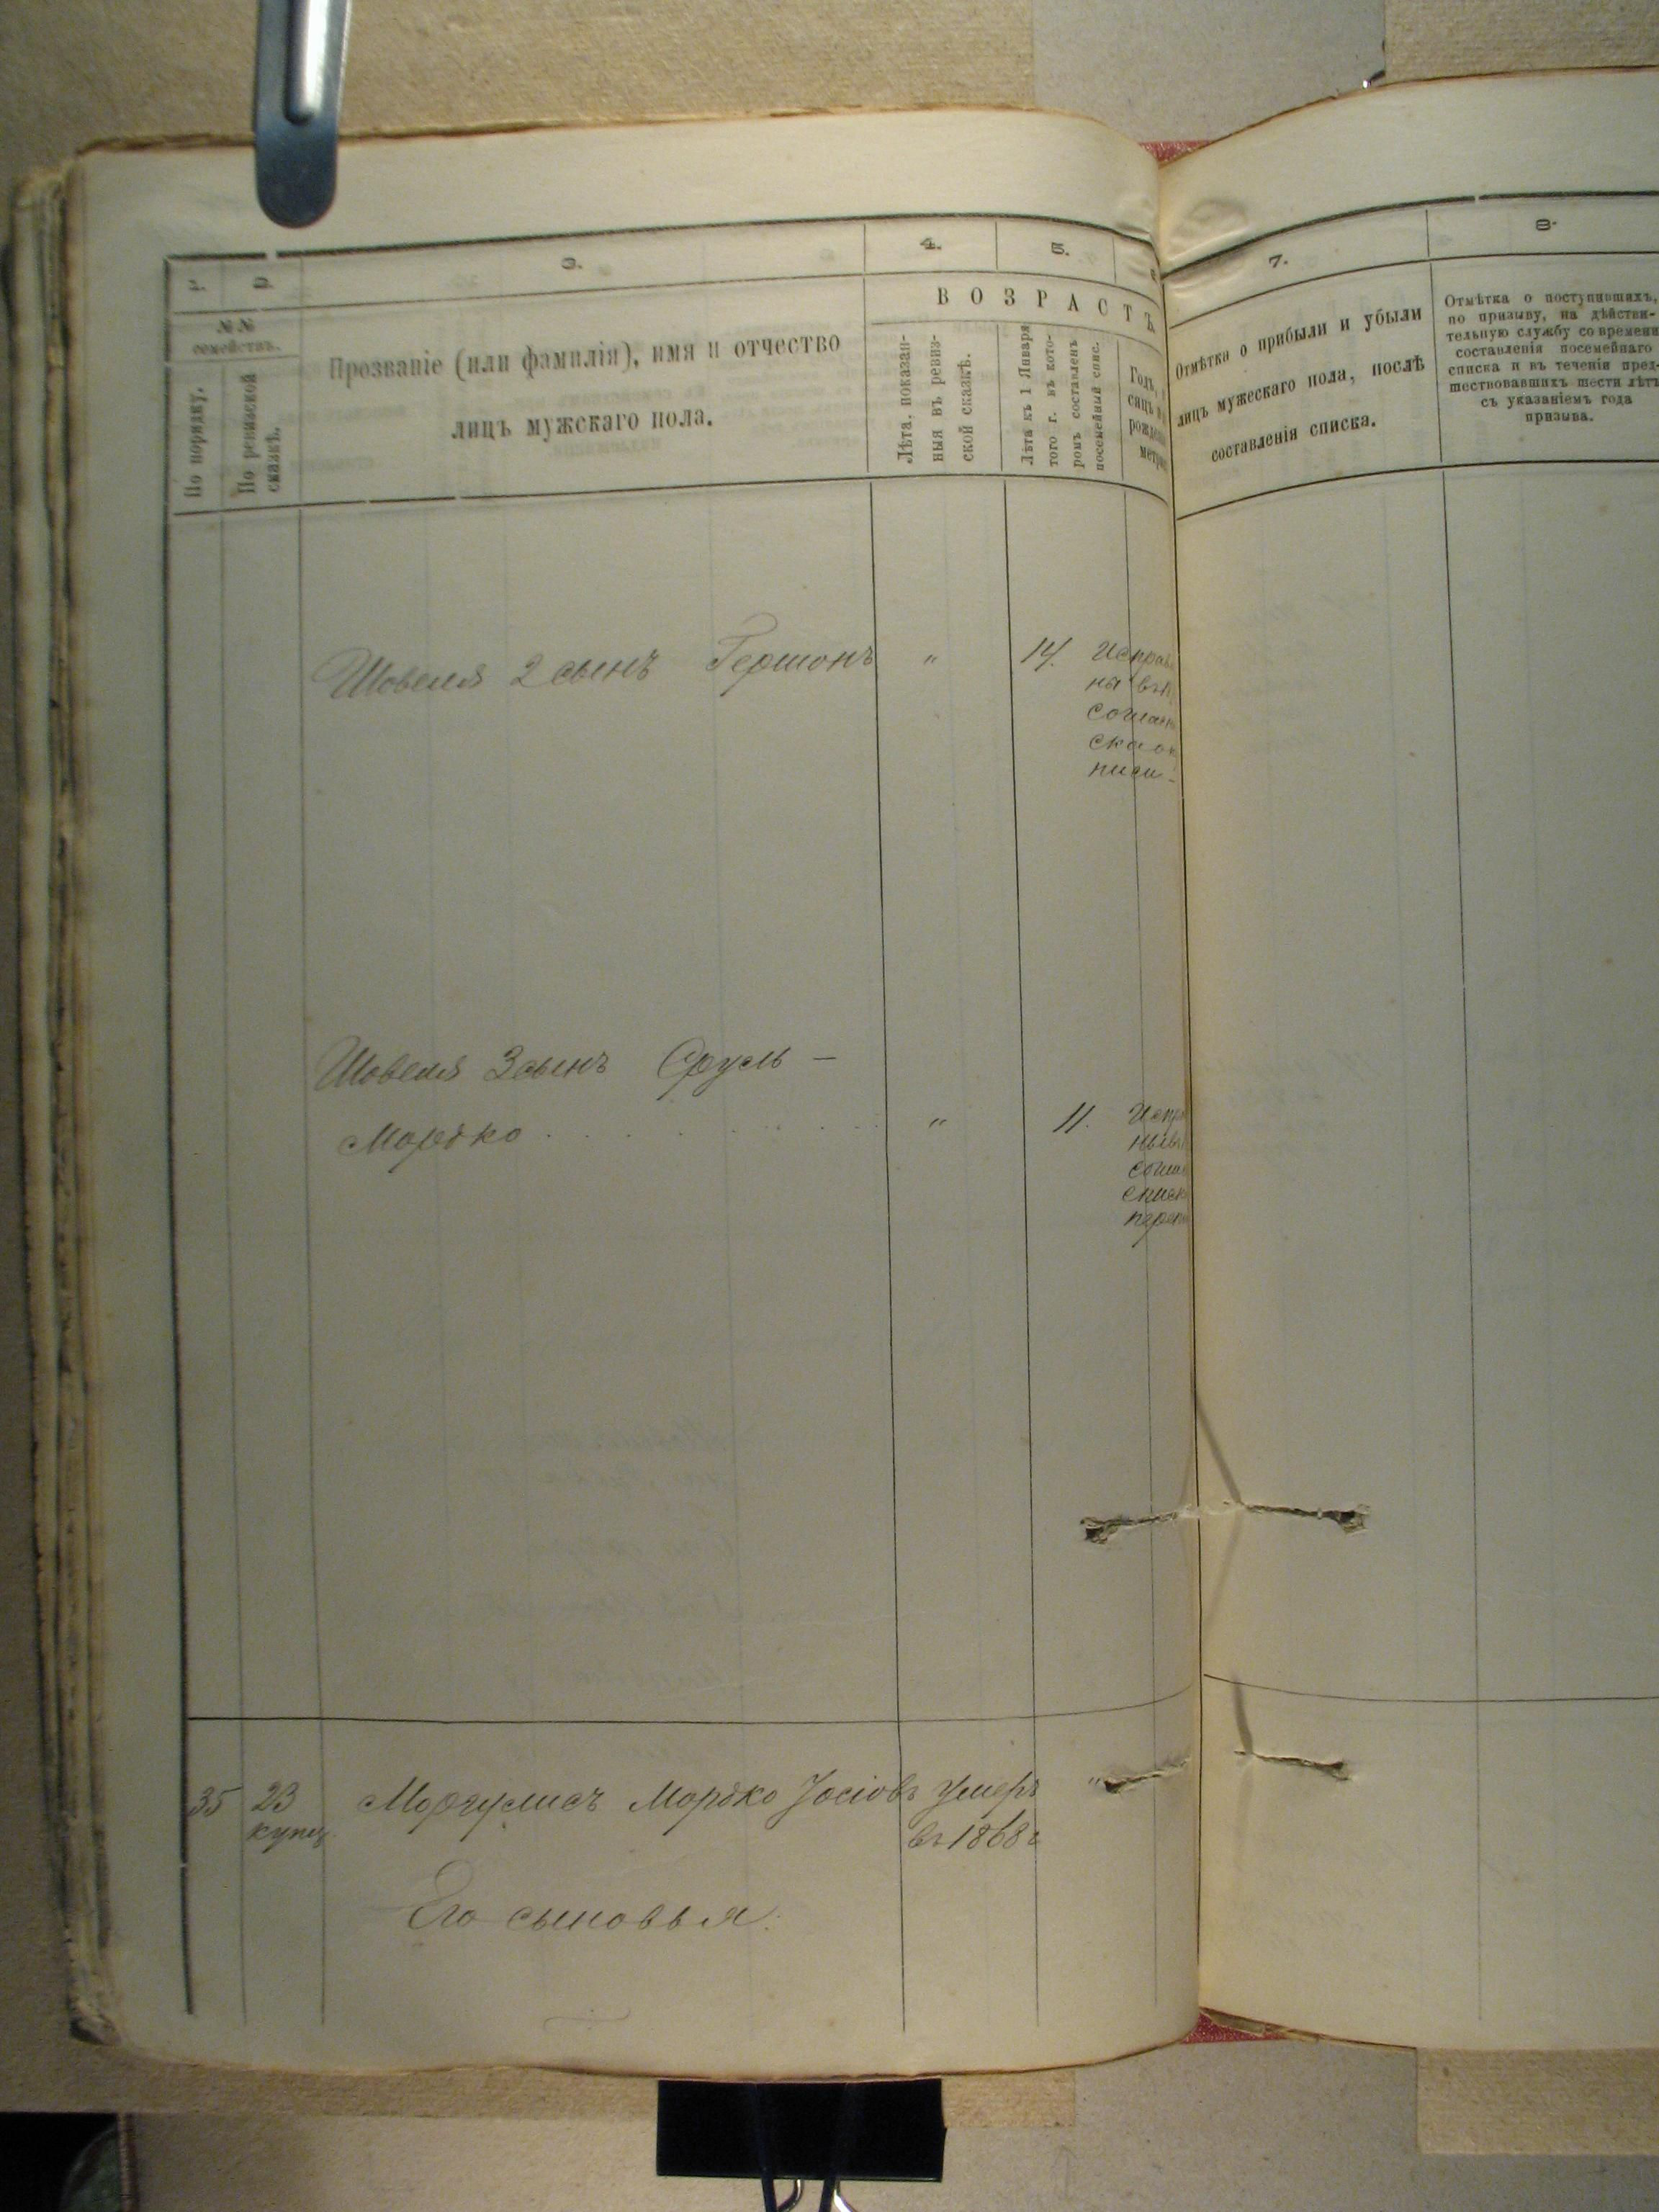 1.
2.
3.
4.
5.
7.
8.
№№
семействъ.
По порядку.
По ревизской
сказкѣ.
Прозваніе (или фамилія), имя и отчество
лицъ мужскаго пола.
ВОЗРАСТЪ.
Лѣта, показан-
ныя въ ревиз-
ской сказкѣ.
Лѣта къ 1 Января
того г. въ кото-
ромъ составленъ
посемейный спис.
Годъ,
Отмѣтка о прибыли и убыли
лицъ мужескаго пола, послѣ
составленія списка.
Отмѣтка о поступившихъ,
по призыву, на дѣйстви-
тельную службу со времени
составленія посемейнаго
списка и въ теченіи пред-
шествовавшихъ шести лѣтъ
съ указаніемъ года
призыва.
Шовеля 2 сынъ Гершонъ „ 14.
Шовеля 3 сынъ Сруль —
Мордко . . . . . . . . „ 11.
35 23 Моргулисъ Мордко Іосіовъ умеръ „
купец. въ 1868 г
Его сыновья: